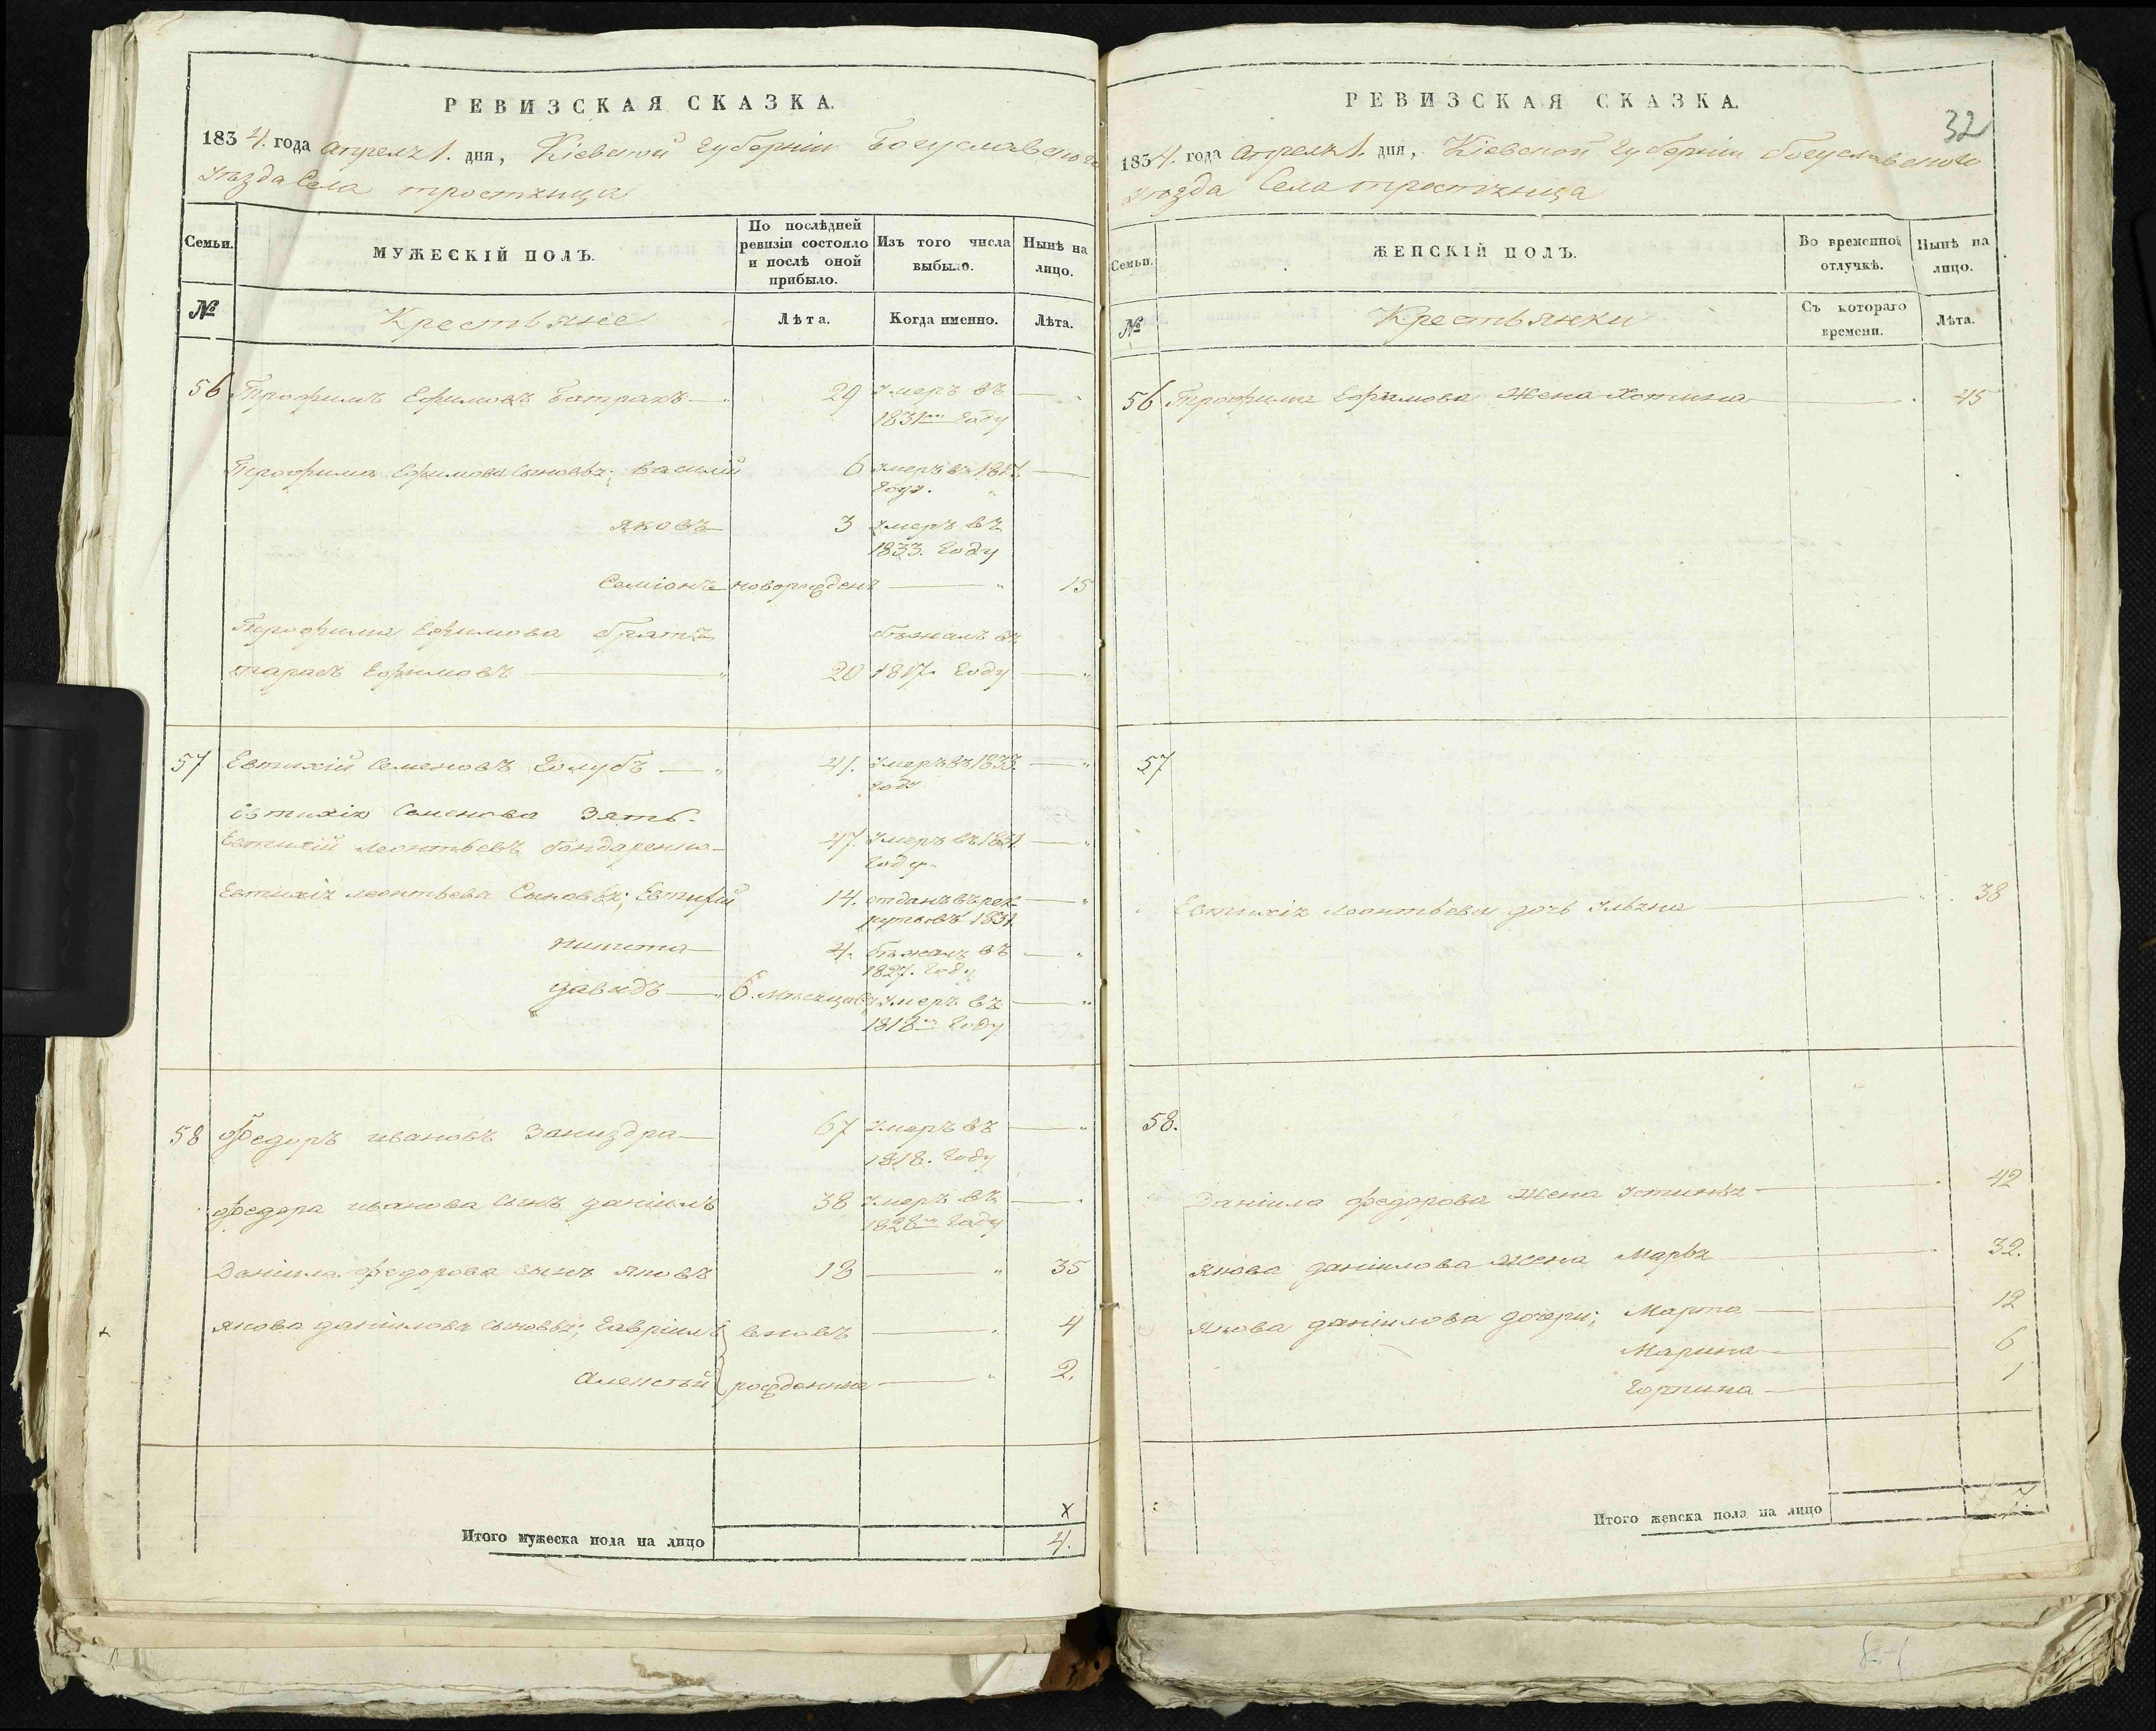 РЕВИЗСКАЯ СКАЗКА.
1834. года Апреля 1. дня, Кіевской Губерніи Богуславского
Уѣзда Села тростянца
Семьи.
МУЖЕСКІЙ ПОЛЪ.
По послѣдней ревизіи состояло и послѣ оной прибыло.
Изъ того числа выбыло.
Нынѣ на лицо.
№
Крестьяне
Лѣта.
Когда именно.
Лѣта.
56 Трофимъ Ефимовъ Батракъ 29 Умеръ въ
1831м Году
Трофима Ефимова Сыновья; Василій 6 Умеръ въ 1817.
Году.
Яковъ 3 Умеръ въ
1833. Году
Семіонъ новорожденъ 15
Трофима Ефимова братъ бѣжалъ въ
тарасъ Ефимовъ 20 1817. Году
57 Евтихій Семеновъ Голубъ 41. Умеръ въ 1833.
Году
Евтихія Семенова Зять.
Евтихій Леонтьевъ Бондаренко 47. Умеръ въ 1831
Году
Евтихія Леонтьева Сыновья; Евтихій 14. отданъ въ рек-
руты въ 1831.
никита 4. бѣжалъ въ
1827. Году
давидъ 6. мѣсяцовъ Умеръ въ
1818м Году
58 Федоръ ивановъ Заниздра 67 Умеръ въ
1818. Году
федора иванова сынъ даніилъ 38 Умеръ въ
1828м Году
Даніила федорова сынъ яковъ 18 35
якова даніилова сыновья; Гавріилъ вновь 4
Алексѣй рожденные 2.
х
Итого мужеска пола на лицо 4.
РЕВИЗСКАЯ СКАЗКА.
32
1834. года Апреля 1. дня, Кіевской Губерніи богуславского
Уѣзда Села тростянца
Семьи.
ЖЕНСКІЙ ПОЛЪ.
Во временной отлучкѣ.
Нынѣ на лицо.
№
Крестьянки
Съ котораго времени.
Лѣта.
56 Трофима Ефимова Жена Хотина 45
57
Евтихія Леонтьева дочь Ульяна 38
58.
Даніила федорова жена Устинья 42
Якова даніилова жена Марья 32.
Якова даніилова дочери; Марта 12
Марина 6
Горпина 1
Итого женска пола на лицо 7.